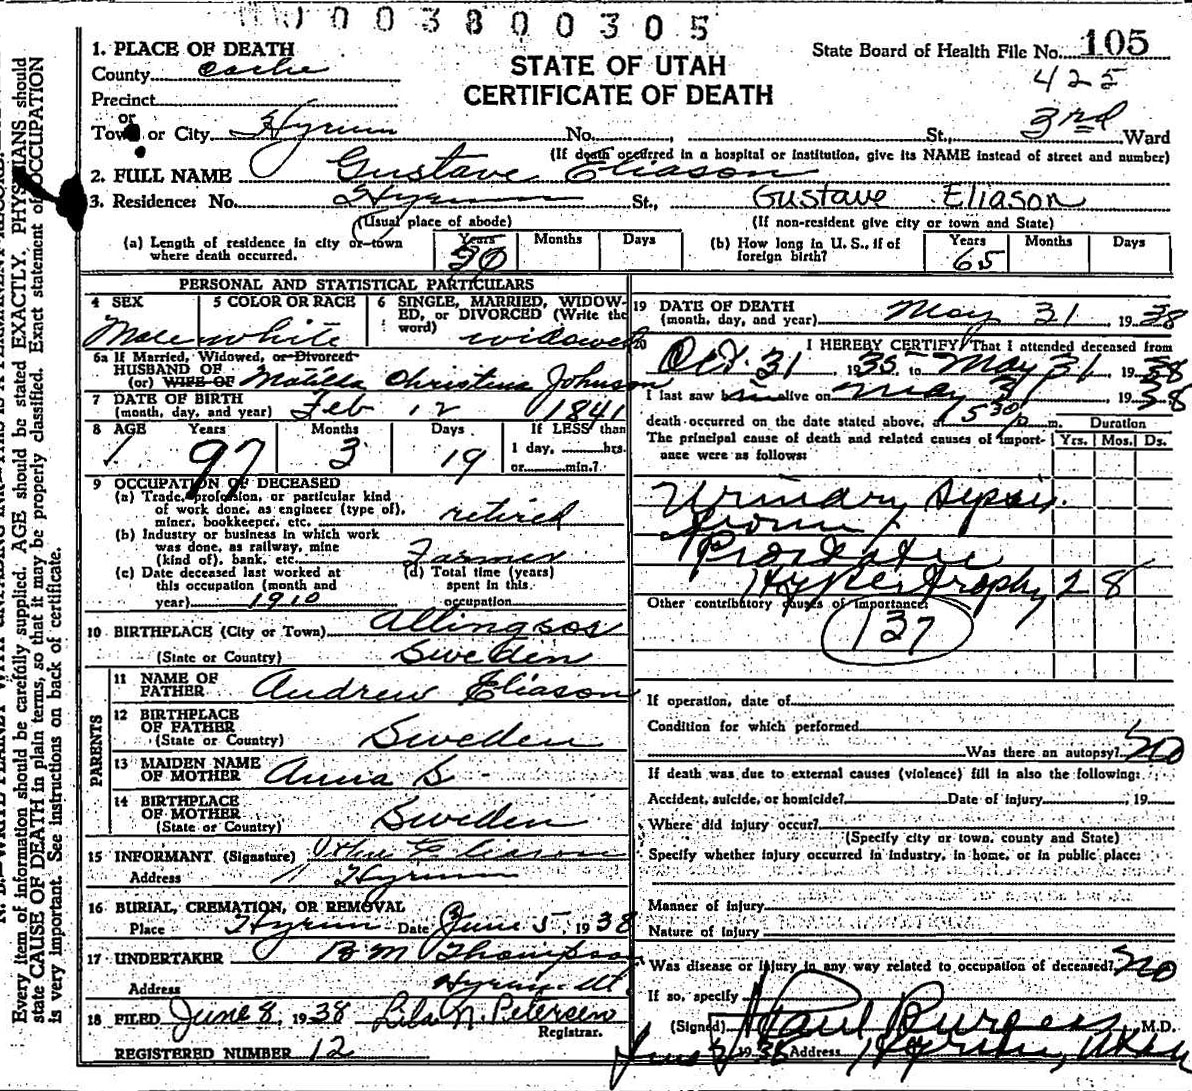 003800305
1. PLACE OF DEATH
County Cache
Precinct
or
Town or City Hyrum No. , St., 3rd Ward
STATE OF UTAH
CERTIFICATE OF DEATH
State Board of Health File No. 105
425
(If death occurred in a hospital or institution, give its NAME instead of street and number)
2. FULL NAME Gustave Eliason
3. Residence: No. Hyrum St., Gustave Eliason
(Usual place of abode) (If non-resident give city or town and State)
(a) Length of residence in city or town where death occurred. Years Months Days
(b) How long in U. S., if of foreign birth? Years 65 Months Days
PERSONAL AND STATISTICAL PARTICULARS
4 SEX Male
5 COLOR OR RACE white
6 SINGLE, MARRIED, WIDOWED, or DIVORCED (Write the word) widowed
6a If Married, Widowed, or Divorced
HUSBAND OF
(or) WIFE OF Matilda Christena Johnson
7 DATE OF BIRTH
(month, day, and year) Feb 12 1841
8 AGE Years 97 Months 3 Days 19 If LESS than
1 day, hrs.
or min.?
9 OCCUPATION OF DECEASED
(a) Trade, profession, or particular kind
of work done, as engineer (type of),
miner, bookkeeper, etc. retired
(b) Industry or business in which work
was done, as railway, mine
(kind of), bank, etc. Farmer
(c) Date deceased last worked at
this occupation (month and
year) 1910
(d) Total time (years)
spent in this
occupation
10 BIRTHPLACE (City or Town) Allingsos
(State or Country) Sweden
PARENTS
11 NAME OF
FATHER Andrew Eliason
12 BIRTHPLACE
OF FATHER
(State or Country) Sweden
13 MAIDEN NAME
OF MOTHER Anna S
14 BIRTHPLACE
OF MOTHER
(State or Country) Sweden
15 INFORMANT (Signature) Eliason
Address Hyrum
16 BURIAL, CREMATION, OR REMOVAL
Place Hyrum Date June 5, 1938
17 UNDERTAKER B M Thompson
Address Hyrum Ut.
18 FILED June 8, 1938 Lila N. Petersen
Registrar.
REGISTERED NUMBER 12
19 DATE OF DEATH
(month, day, and year) May 31, 1938
20 I HEREBY CERTIFY, That I attended deceased from
Oct. 31 1935 to May 31, 1938
I last saw him alive on May 31, 1938
death occurred on the date stated above, at 5 30 p m. Duration
The principal cause of death and related causes of importance were as follows: Yrs. Mos. Ds.
Urinary Sepsis
from
Prostatic
Hypertrophy 2 8
Other contributory causes of importance:
137
If operation, date of
Condition for which performed
Was there an autopsy? no
If death was due to external causes (violence) fill in also the following:
Accident, suicide, or homicide? Date of injury , 19
Where did injury occur?
(Specify city or town, county and State)
Specify whether injury occurred in industry, in home, or in public place:
Manner of injury
Nature of injury
Was disease or injury in any way related to occupation of deceased? no
If so, specify
(Signed) Paul Burgess M.D.
June 1938 Address Hyrum, Utah
Every item of information should be carefully supplied. AGE should be stated EXACTLY. PHYSICIANS should
state CAUSE OF DEATH in plain terms, so that it may be properly classified. Exact statement of OCCUPATION
is very important. See instructions on back of certificate.